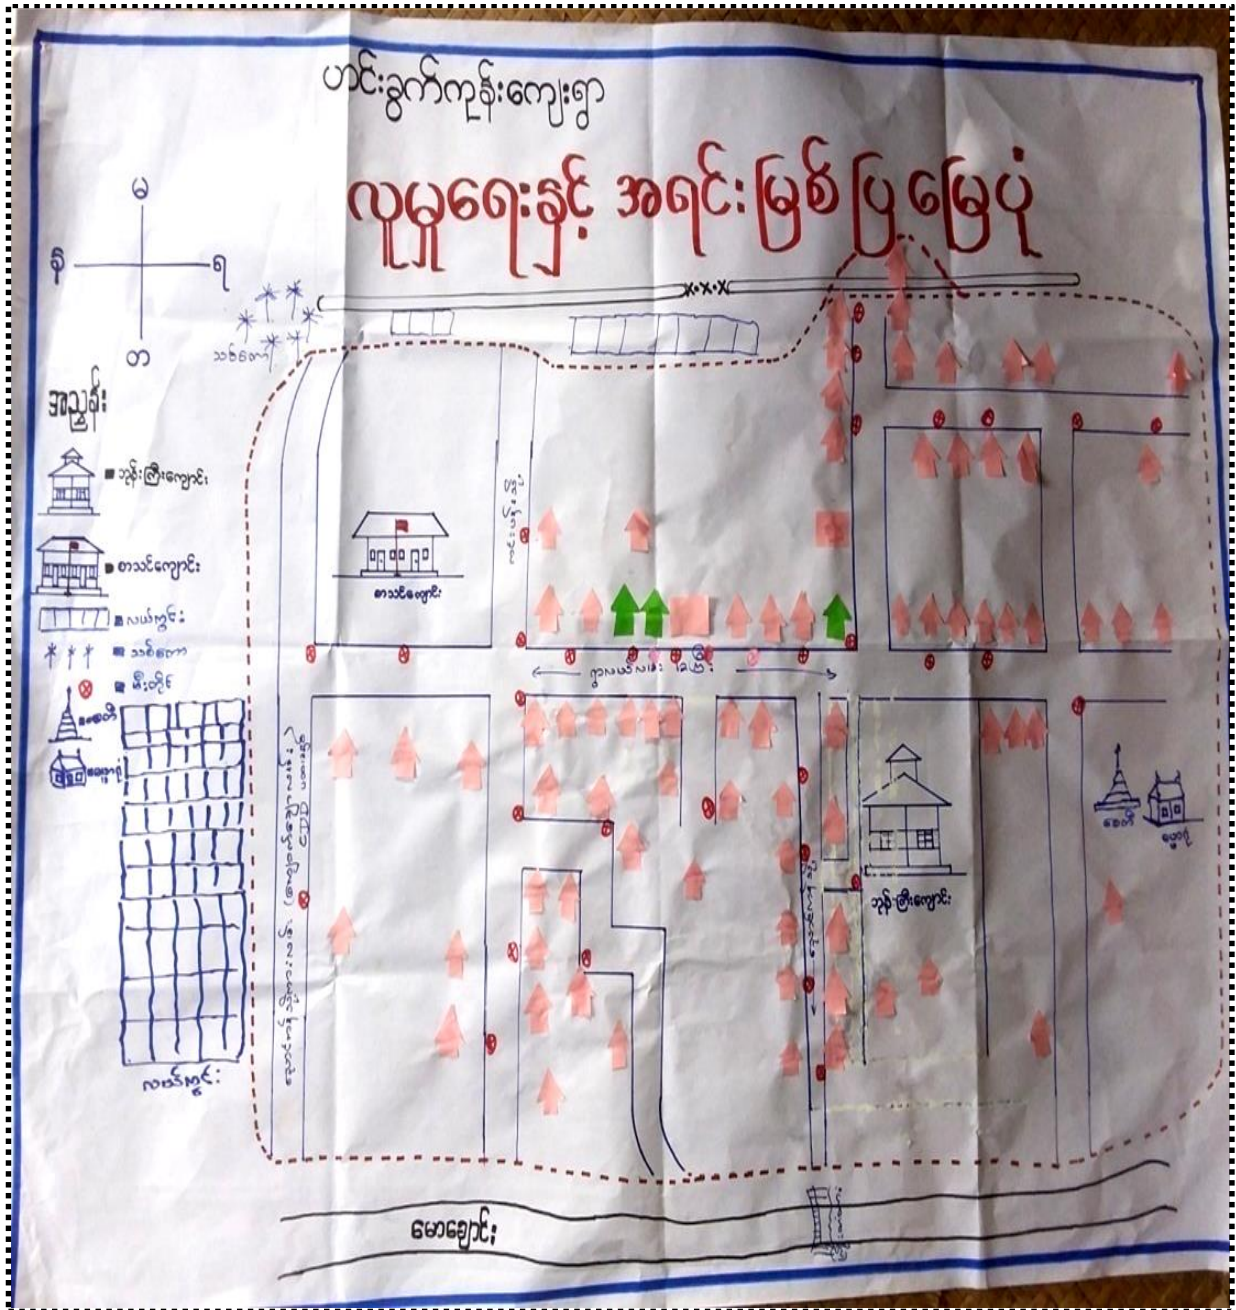 ဟင်းခွက်ကုန်းကျေးရွာ
လူမှုရေးနှင့် အရင်းမြစ်ပြ မြေပုံ
မ
န
ရ
တ
သစ်တော
အညွှန်း
ဘုန်းကြီးကျောင်း
စာသင်ကျောင်း
လယ်ကွင်း
သစ်တော
မီးတိုင်
စေတီ
ဓမ္မာရုံ
စာသင်ကျောင်း
ရွာလယ်လမ်း
စေတီ
ဓမ္မာရုံ
ဘုန်းကြီးကျောင်း
လယ်ကွင်း
မောချောင်း